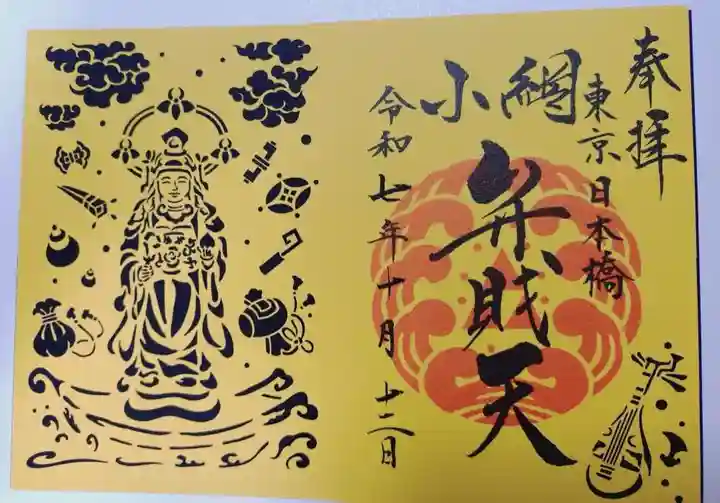 奉拝
東京日本橋
小網
弁財天
令和七年十月十二日